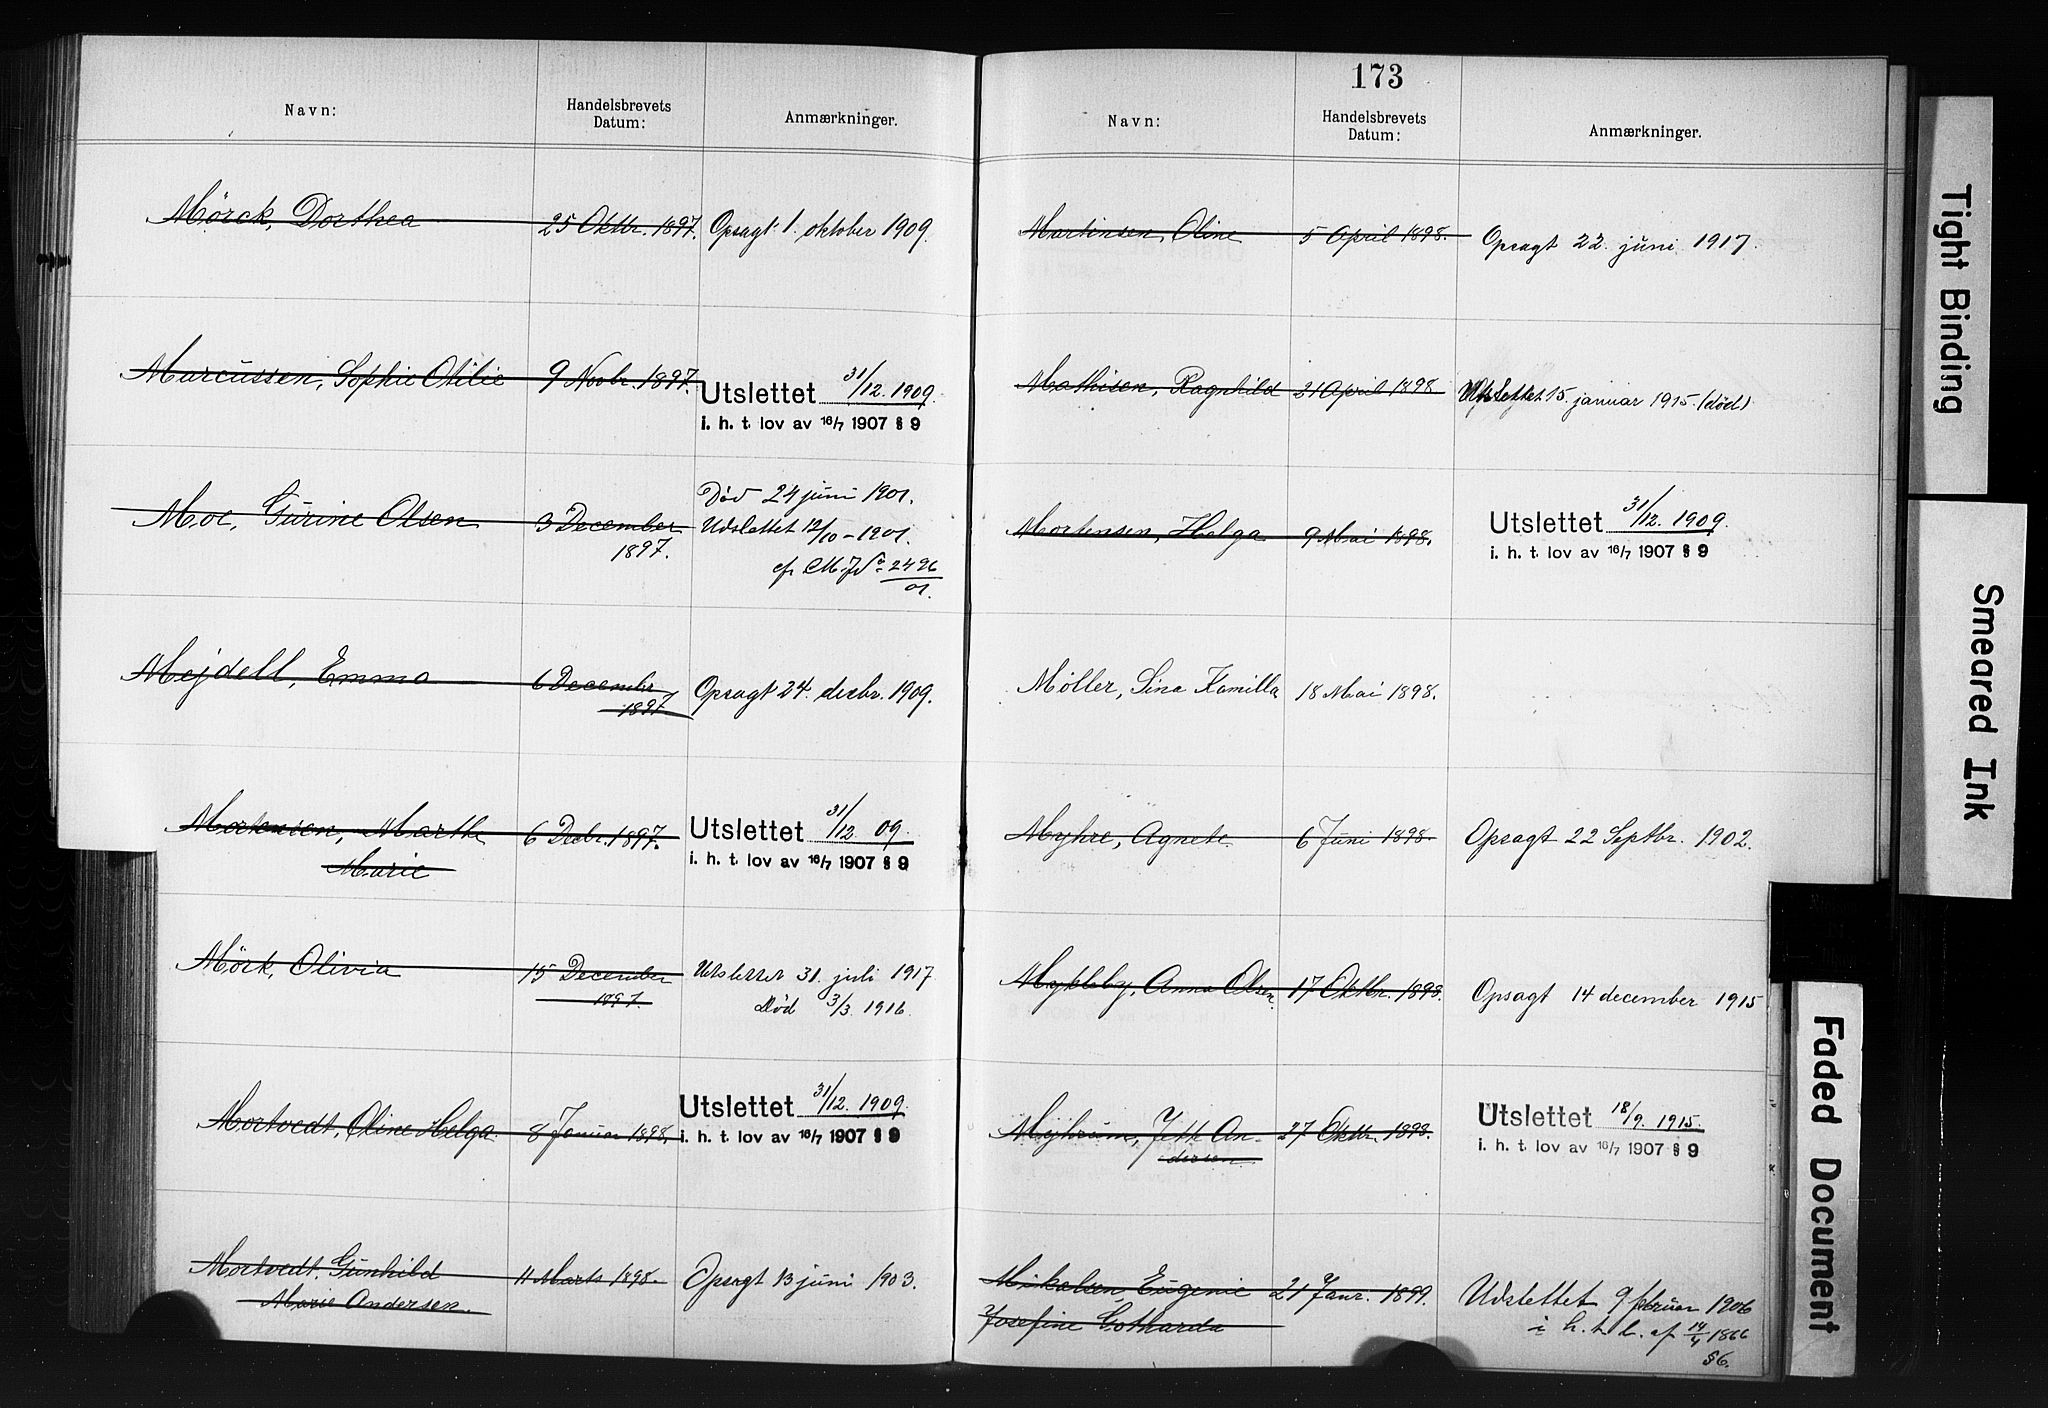 Navn:
Handelsbrevets
Datum:
Anmærkninger.
Mörck, Dorthea
25 Oktbr. 1897.
Opsagt 1. oktober 1909.
Marcussen, Sophie Otilie
9 Novbr. 1897.
Utslettet 31/12. 1909.
i. h. t. lov av 16/7 1907 § 9
Moe, Gurine Olsen
3 December
1897.
Død 24 juni 1901.
Udslettet 12/10 - 1901.
2496
01.
Mejdell, Emma
6 Decembr
1897
Opsagt 24. decbr. 1909.
Mortensen, Marthe
Marie
6 Decbr. 1897.
Utslettet 31/12 09.
i. h. t. lov av 16/7 1907 § 9
Mörk, Olivia
15 December
1897.
Utslettet 31. juli 1917
Död 3/3. 1916.
Mortvedt, Oline Helga.
8 Januar 1898.
Utslettet 31/12. 1909.
i. h. t. lov av 16/7 1907 § 9
Mortvedt, Gunhild
Marie Andersen.
11 Marts 1898.
Opsagt 13 juni 1903.
173
Navn:
Handelsbrevets
Datum:
Anmærkninger.
Martinsen, Oline
5 April 1898.
Opsagt 22. juni 1917.
Mathisen, Ragnhild
21 April 1898
Utslettet 15. januar 1915. (død)
Mortensen, Helga
9 Mai 1898.
Utslettet 31/12. 1909.
i. h. t. lov av 16/7 1907 § 9
Möller, Sina Kamilla
18 Mai 1898.
Myhre, Agnete.
6 Juni 1898.
Opsagt 22 Septbr. 1902.
Mykleby, Anna Olsen
17 Oktbr. 1898.
Opsagt 14 december 1915
Myhrum, An-
dersen
27 Oktbr. 1898.
Utslettet 18/9. 1915.
i. h. t. lov av 16/7 1907 § 9
Mikalsen, Eugenie
Josefine Gotharda
21 Janr. 1899.
Udslettet 9 februar 1906
i h. t. l. af 14/4 1866
§ 6.
Tight Binding
Smeared Ink
Faded Document